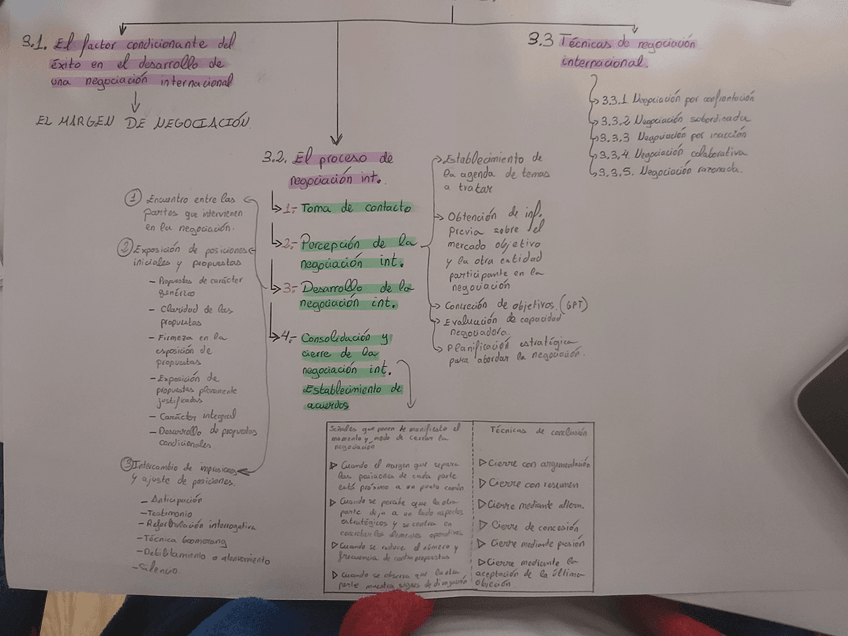 3.1. El factor condicionante del
éxito en el desarrollo de
una negociación internacional
EL MARGEN DE NEGOCIACIÓN
3.2. El proceso de
negociación int.
1.- Toma de contacto
2.- Percepción de la
negociación int.
3.- Desarrollo de la
negociación int.
4.- Consolidación y
cierre de la
negociación int.
Establecimiento de
acuerdos
3.3 Técnicas de negociación
internacional.
3.3.1 Negociación por confrontación
3.3.2 Negociación subordinada
3.3.3 Negociación por inacción
3.3.4 Negociación colaborativa
3.3.5. Negociación razonada.
Establecimiento de
la agenda de temas
a tratar
Obtención de inf.
previa sobre el
mercado objetivo
y la otra entidad
participante en la
negociación
Concreción de objetivos. (GPT)
Evaluación de capacidad
negociadora.
Planificación estratégica
para abordar la negociación.
1 Encuentro entre las
partes que intervienen
en la negociación.
2 Exposición de posiciones
iniciales y propuestas
- Propuestas de carácter
genérico
- Claridad de las
propuestas
- Firmeza en la
exposición de
propuestas
- Exposición de
propuestas plenamente
justificadas
- Carácter integral
- Desarrollo de propuestas
condicionales
3 Intercambio de impresiones
y ajuste de posiciones.
- Anticipación
- Testimonio
- Reformulación interrogativa
- Técnica boomerang
- Debilitamiento o atenuamiento
- Silencio
Señales que ponen de manifiesto el
momento y modo de cerrar la
negociación
Cuando el margen que separa
las posiciones de cada parte
está próximo a un punto común
Cuando se percibe que la otra
parte deja a un lado aspectos
estratégicos y se centra en
los elementos operativos
Cuando se reduce el número y
frecuencia de contrapropuestas
Cuando se observa que la otra
parte muestra signos de
Técnicas de conclusión
Cierre con argumentación
Cierre con resumen
Cierre mediante altern.
Cierre de concesión
Cierre mediante presión
Cierre mediante la
aceptación de la última
objeción